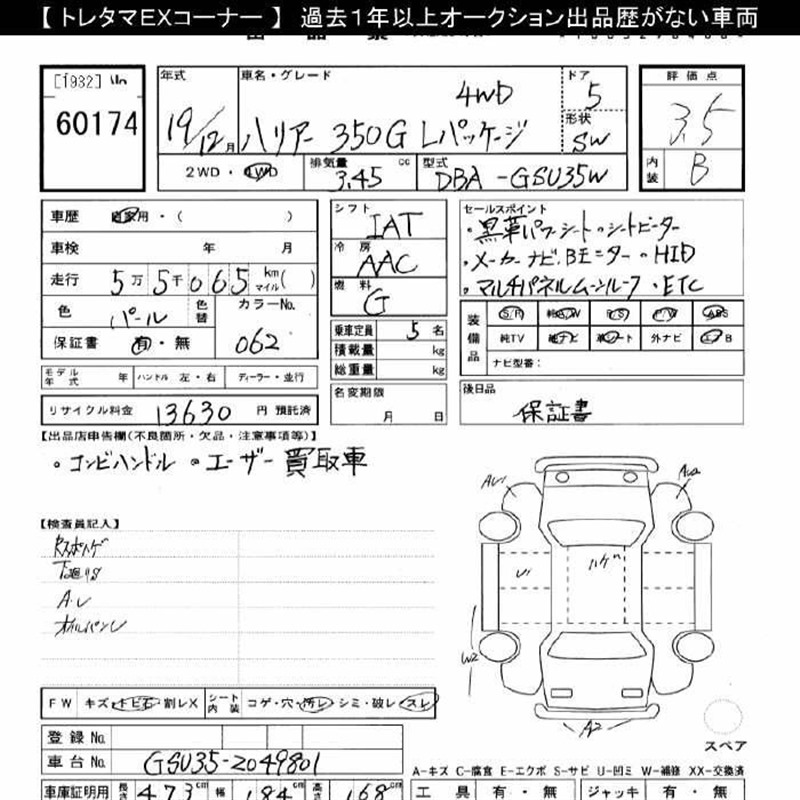 【 トレタマEXコーナー 】 過去1年以上オークション出品歴がない車両
[1932]
60174
年式
19/12月
車名・グレード
4WD
ハリアー 350G Lパッケージ
ドア
5
形状
SW
評価点
3.5
内装
B
2WD・4WD
排気量
3.45 cc
型式
DBA-GSU35W
車歴 自家用・( )
車検 年 月
走行 5万5千065 km マイル( )
色 パール 色替
カラーNo.
062
保証書 有・無
モデル年式 年 ハンドル 左・右 ディーラー・並行
リサイクル料金 13630 円 預託済
シフト
IAT
冷房
AAC
燃料
G
乗車定員 5 名
積載量 kg
総重量 kg
名変期限
月 日
セールスポイント
・黒革パワーシート・シートヒーター
・メーカーナビ、Bモニター・HID
・マルチパネルムーンルーフ・ETC
装備品
S/R 純AW P/S P/W ABS
純TV 純ナビ 革シート 外ナビ エアB
ナビ型番:
後日品
保証書
【出品店申告欄(不良箇所・欠品・注意事項等)】
・コンビハンドル ・ユーザー買取車
【検査員記入】
下廻りS
A.U
オイルパンU
AU1
W2
A2
FW キズ・トビ石・割レX
シート内装 コゲ・穴・汚レ・シミ・破レ・スレ
スペア
登録No.
車台No. GSU35-2049801
A-キズ C-腐食 E-エクボ S-サビ U-凹ミ W-補修 XX-交換済
車庫証明用 長さ 473cm 幅 184cm 高さ 168cm
工具 有・無 ジャッキ 有・無